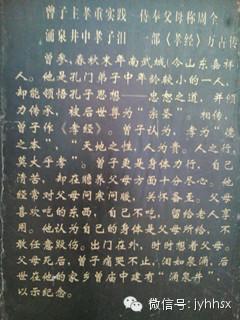 曾子主孝重实践 侍奉父母称周全
涌泉井中孝子泪 一部《孝经》万古传
曾参，春秋末年南武城（今山东嘉祥
人。他是孔门弟子中年龄较小的一人，
却能领悟孔子思想——忠恕之道，并倾
力传承，被后世尊为“宗圣”。相传，
曾子作《孝经》。曾子认为，孝为“德
之本”，“天地之性，人为贵。人之行，
莫大乎孝”。曾子更是身体力行，自己
清苦，却在赡养父母方面十分尽心。他
经常对父母问寒问暖，关怀备至。父母
喜欢吃的东西，自己不吃，留给老人享
用。他认为自己的身体是父母所给，不
敢任意毁伤。出门在外，时时想着父母。
父母死后，曾子痛哭不止，泪如泉涌。后
世在他的家乡曾庙中建有“涌泉井”，
以示纪念。
微信号：jyhhsx